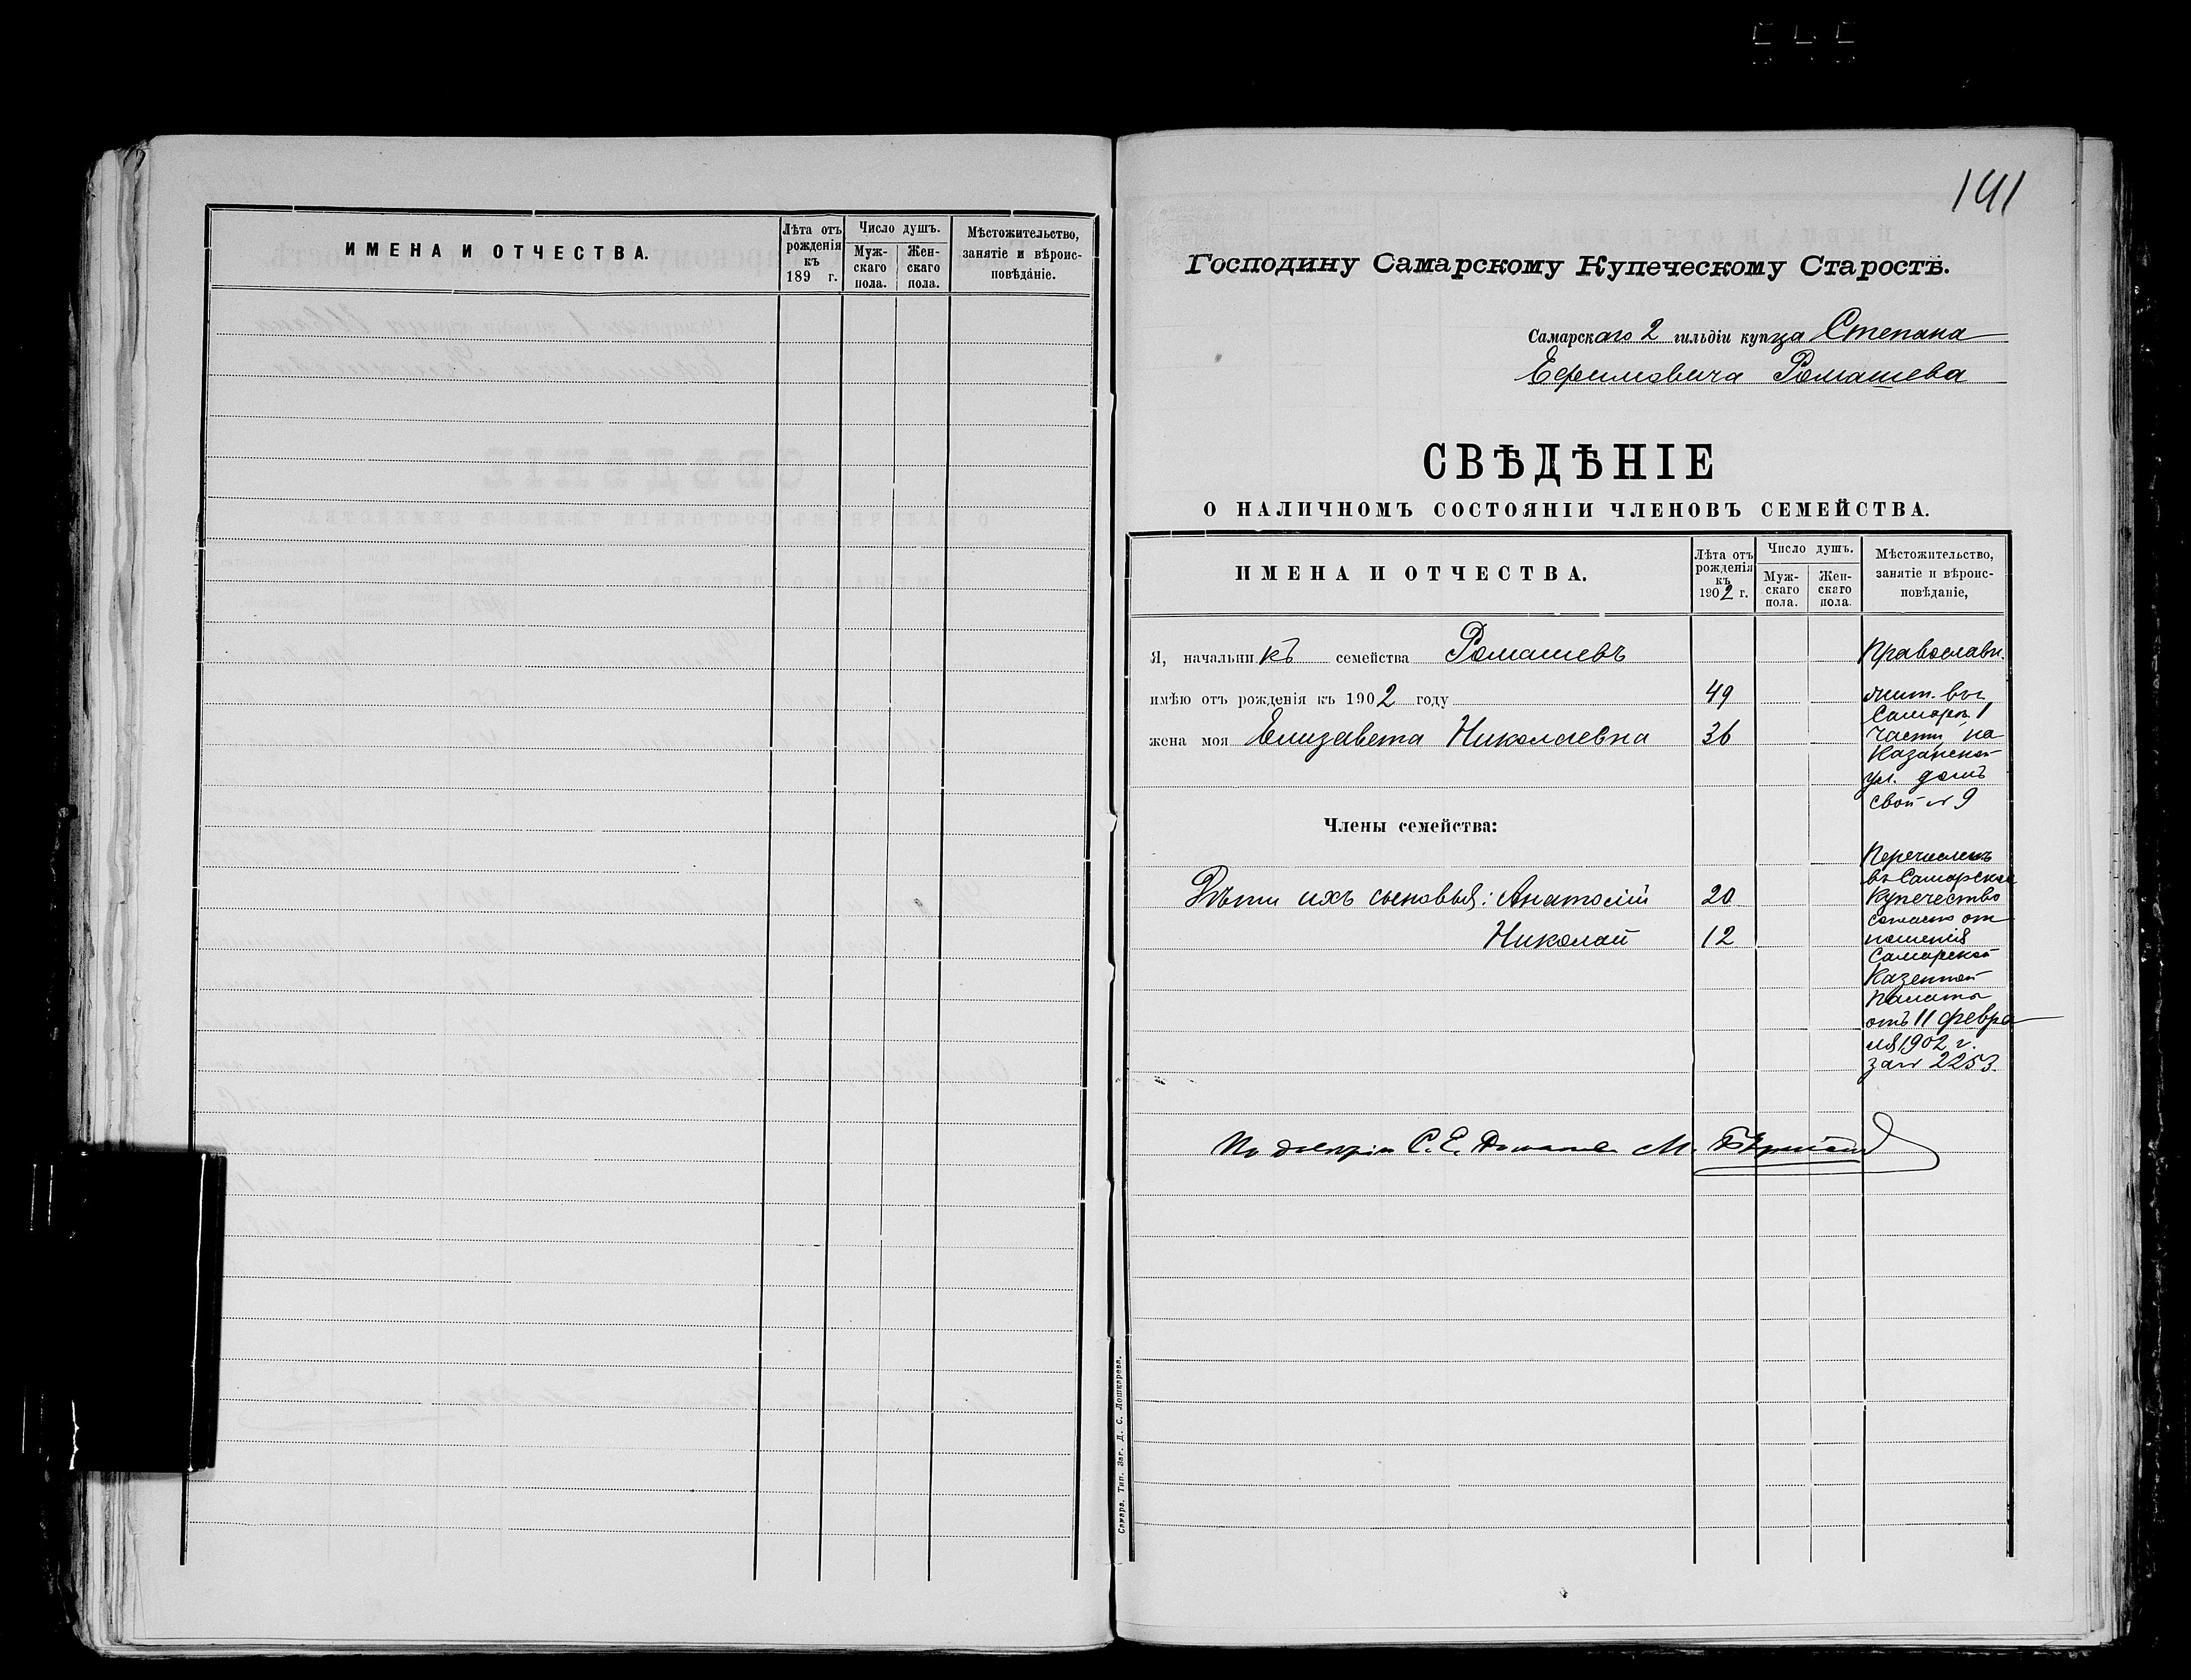 ИМЕНА И ОТЧЕСТВА.
Лѣта отъ рожденія къ 189 г.
Число душъ.
Мужскаго пола.
Женскаго пола.
Мѣстожительство, занятіе и вѣроисповѣданіе.
141
Господину Самарскому Купеческому Старостѣ.
Самарскаго 2 гильдіи купца Степана
Ефимовича Ромашева
СВѢДѢНІЕ
О НАЛИЧНОМЪ СОСТОЯНІИ ЧЛЕНОВЪ СЕМЕЙСТВА.
ИМЕНА И ОТЧЕСТВА.
Лѣта отъ рожденія къ 1902 г.
Число душъ.
Мужскаго пола.
Женскаго пола.
Мѣстожительство, занятіе и вѣроисповѣданіе,
Я, начальникъ семейства Ромашевъ
имѣю отъ рожденія къ 1902 году 49
жена моя Елизавета Николаевна 36
Православн.
жит. въ г.
Самарѣ 1
части на
Казанской
ул. домъ
свой № 9
Члены семейства:
Дѣти ихъ сыновья: Анатолій 20
Николай 12
Перечисленъ
въ Самарское
купечество
согласно от
ношенія
Самарской
Казенной
Палаты
отъ 11 февра
ля 1902 г.
за № 2253.
По довѣрію С. Е. Ромашева М.
Самара. Тип. Заг. Д. С. Лошкарева.